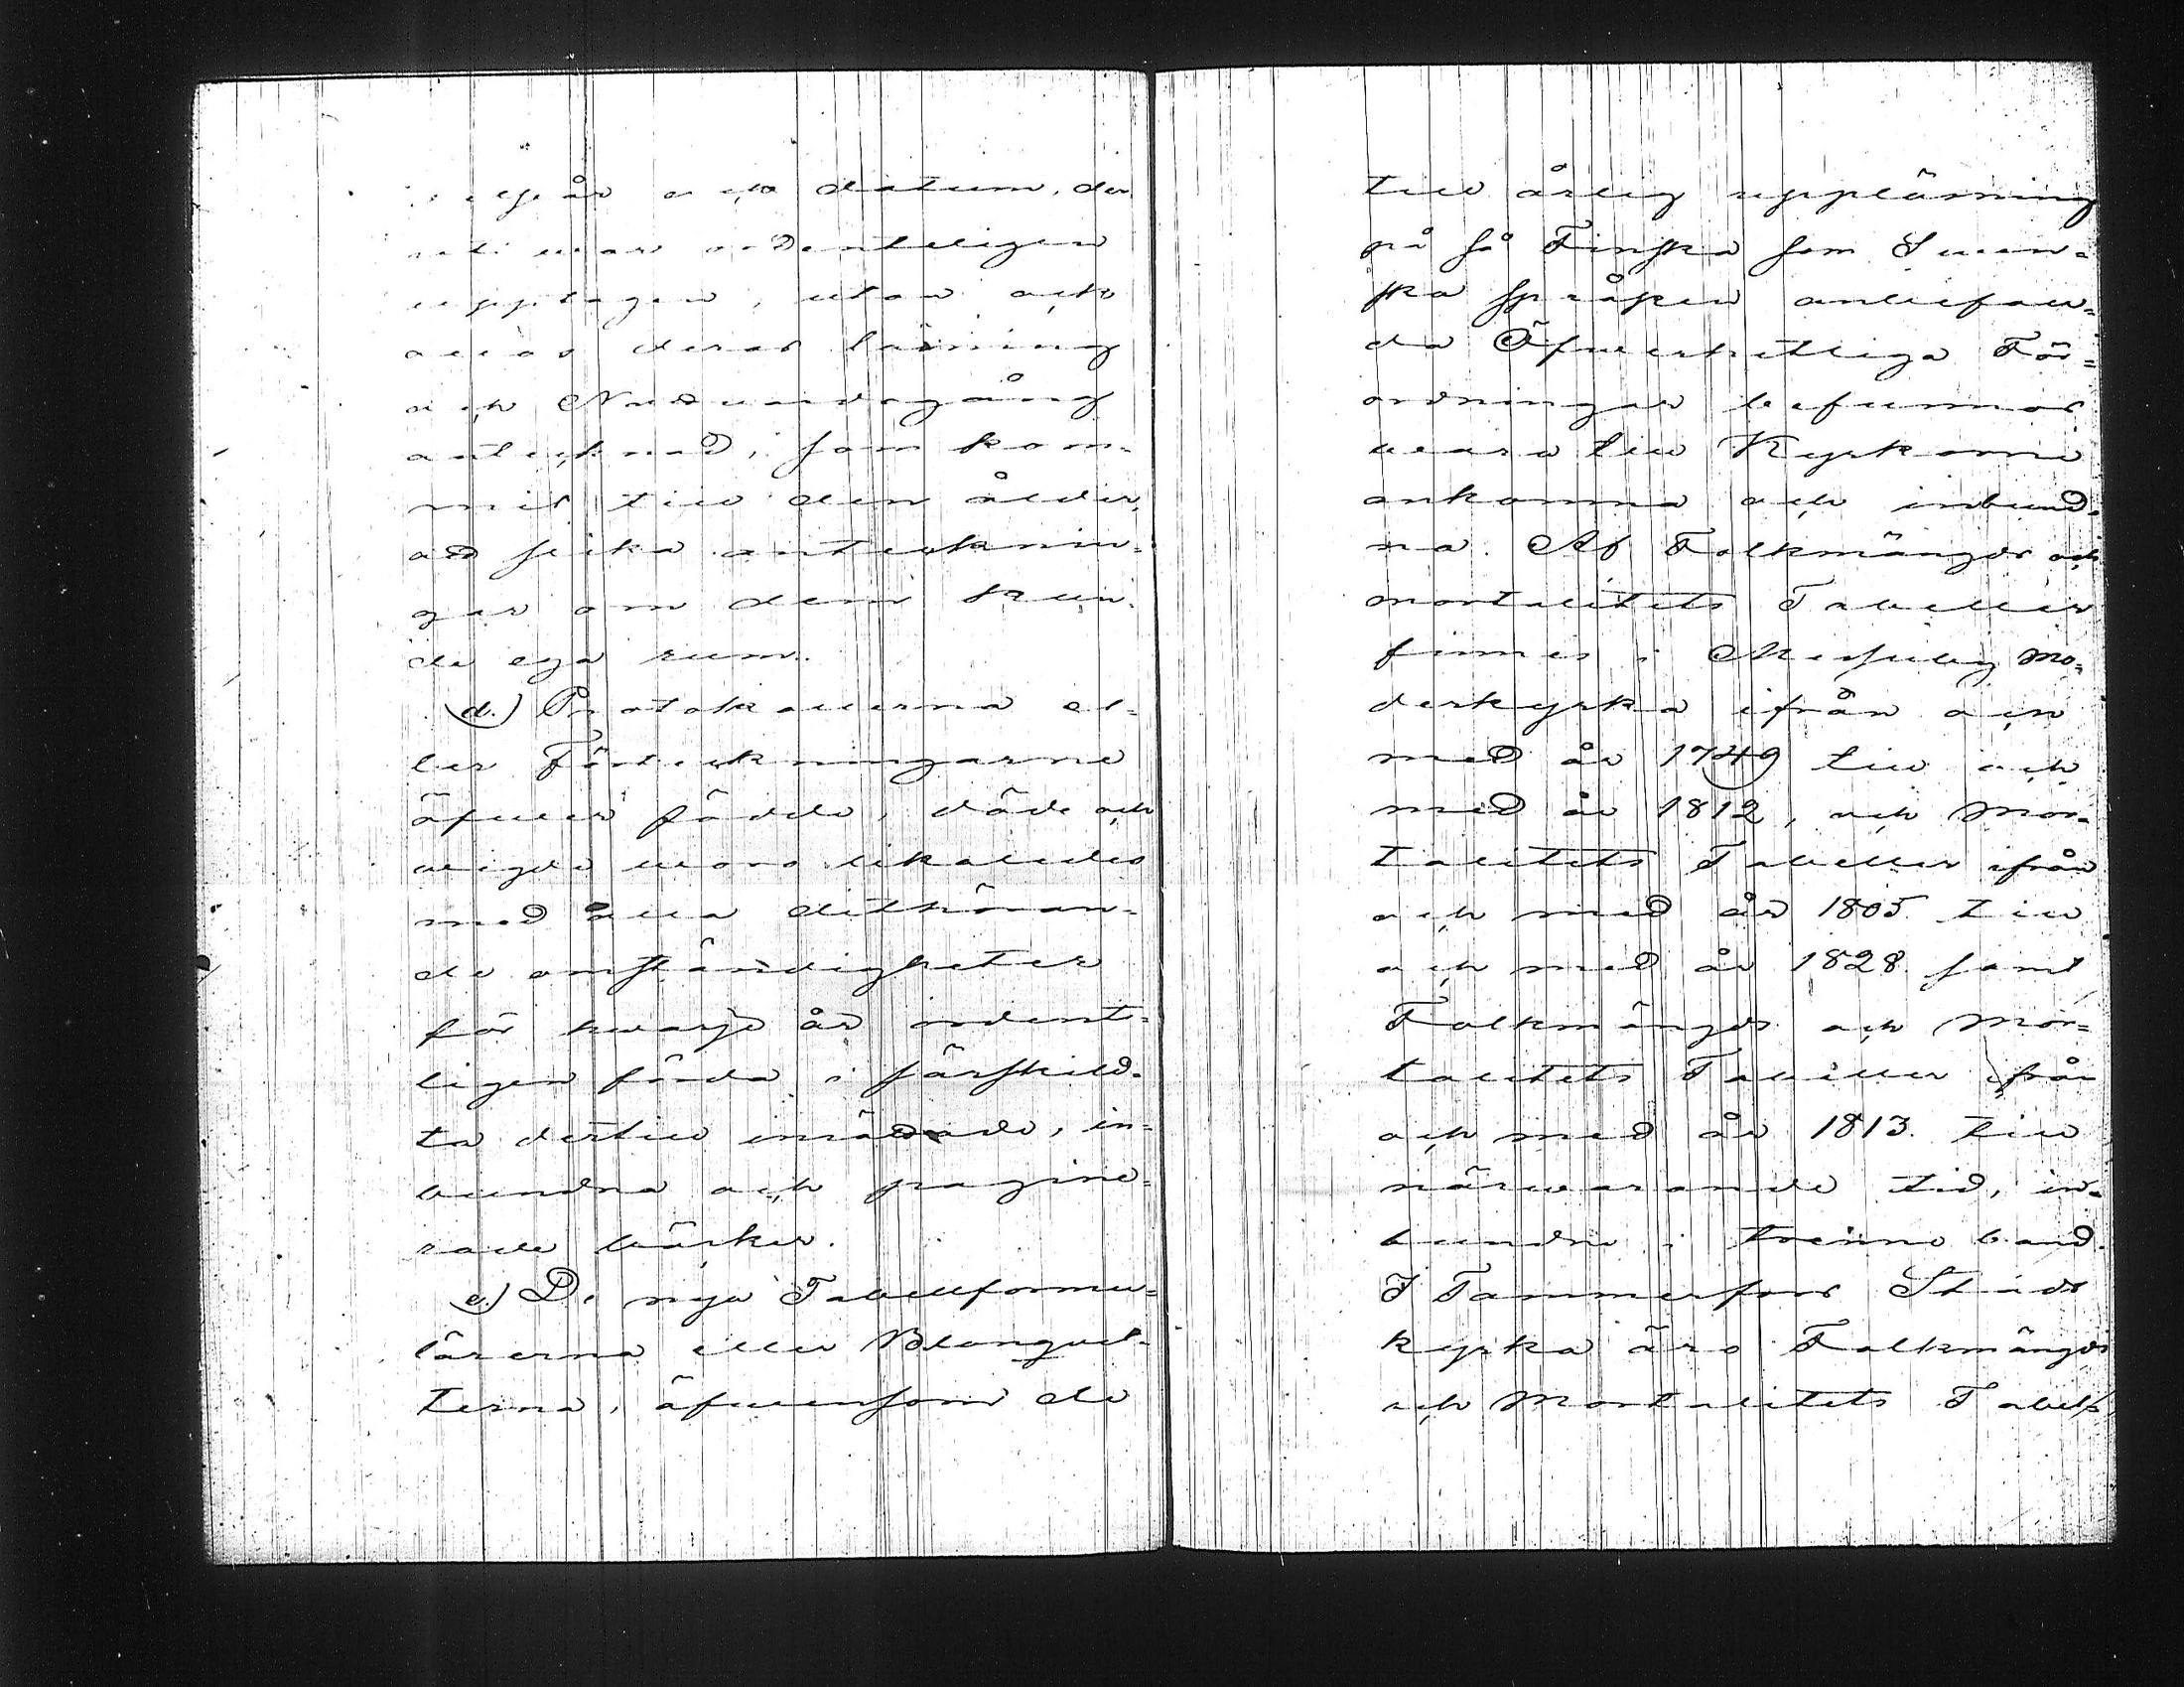 år och datum, der
woro ordenteligen
upptagen, utan ock
allas deras läsning
och Nattvardsgång
antecknad, som kom-
mit till den ålder,
att slika antecknin-
gar om dem kun-
de ega rum.
d.) Protokollerna el-
ler Förteckningarne
öfwer födde, döde och
wigde woro likaledes
med alla dithöran-
de omständigheter
för hwarje år ordent-
ligen förda i särskild-
ta dertill inrättade, in-
bundna och pagine-
rade böcker.
e.) De nya Tabellformu-
lärerna eller Blanquet-
terna, äfwensom de
till årlig uppläsning
på så Finska som Swen-
ska språken anbefall-
da Öfwerhetliga För-
ordningar befunnos
wara till Kyrkorne
ankomna och inbund-
na. Af Folkmängds och
mortalitets Tabeller
finnes i Messuby Mo-
derkyrka ifrån och
med år 1749 till och
med år 1812, och Mor-
talitets Tabeller ifrån
och med år 1805 till
och med år 1828 samt
Folkmängds och Mor-
talitets Tabeller ifrån
och med år 1813 till
närwarande tid, in-
bundne i trenne band.
I Tammerfors Stads
kyrka äro Folkmängds
och Mortalitets Tabell